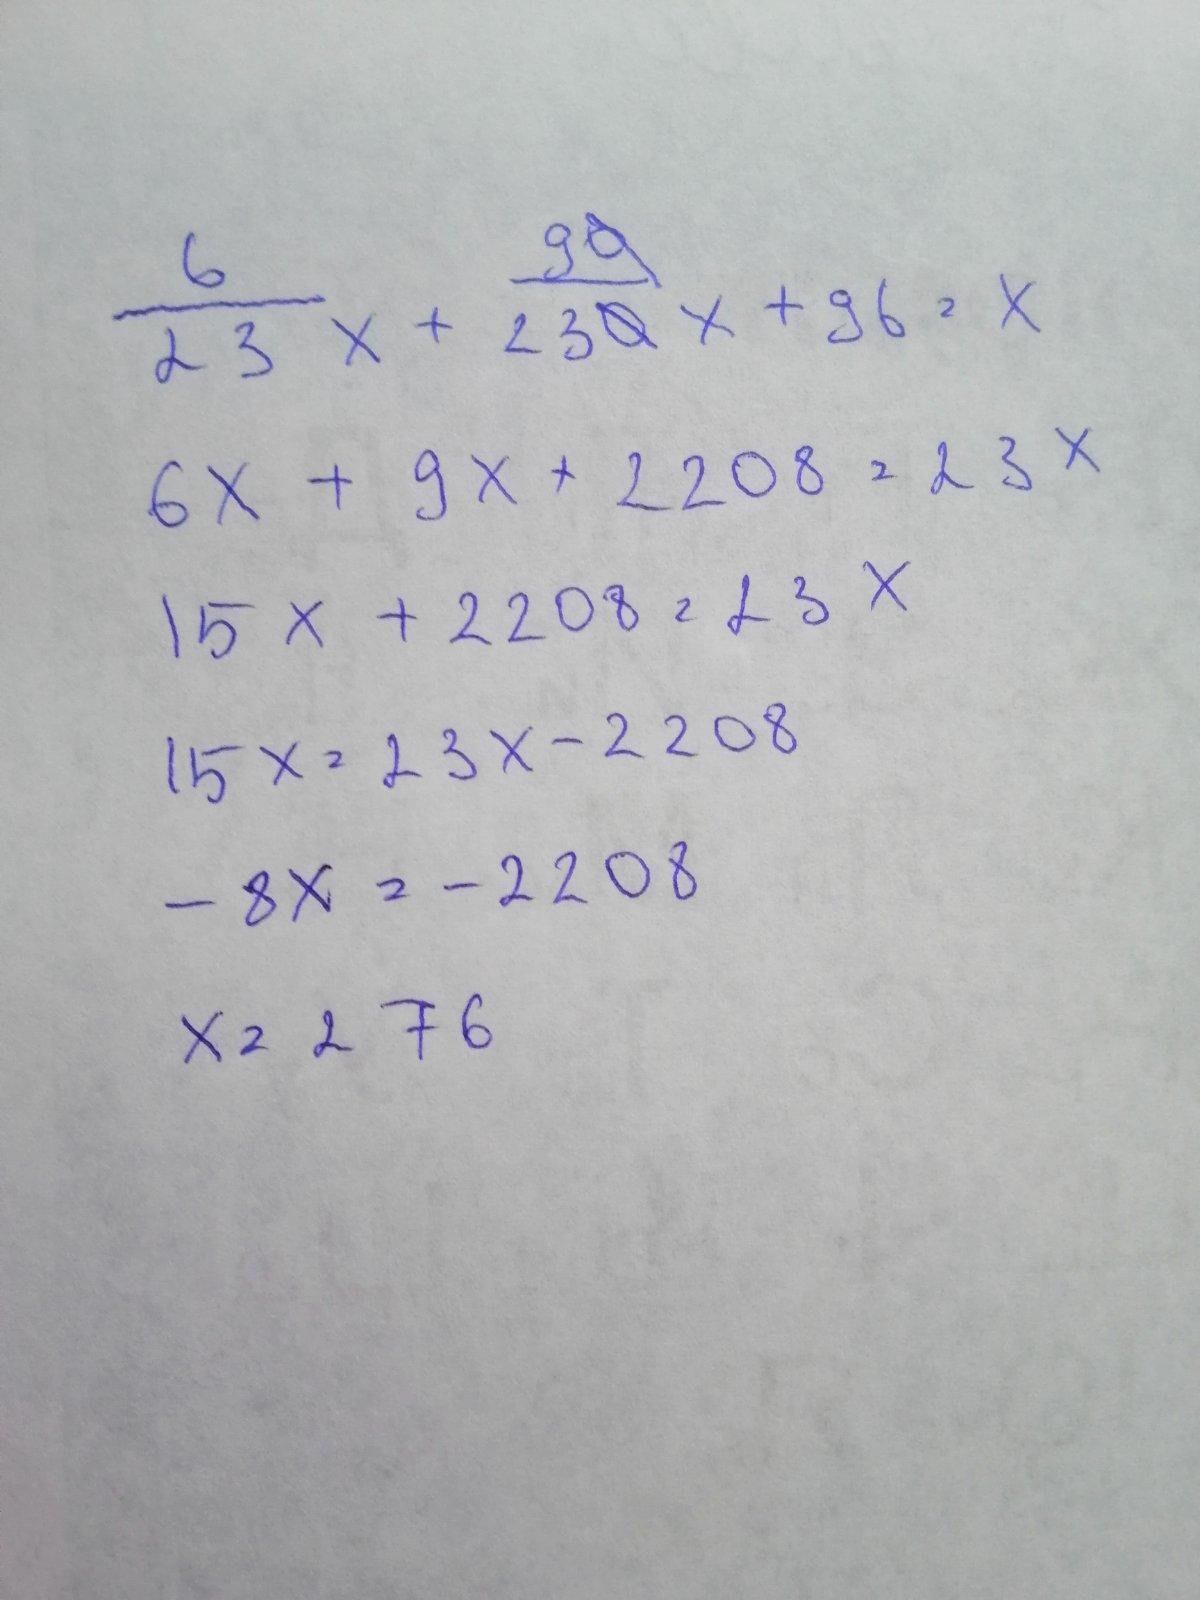 6/23 x + 90/230 x + 96 = x
6x + 9x + 2208 = 23x
15x + 2208 = 23x
15x = 23x - 2208
- 8x = - 2208
x = 276